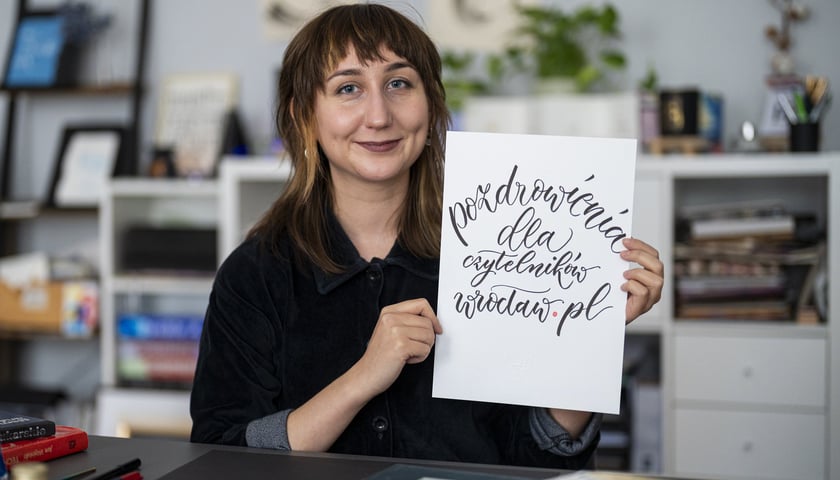 pozdrowienia
dla
czytelników
wrocław.pl